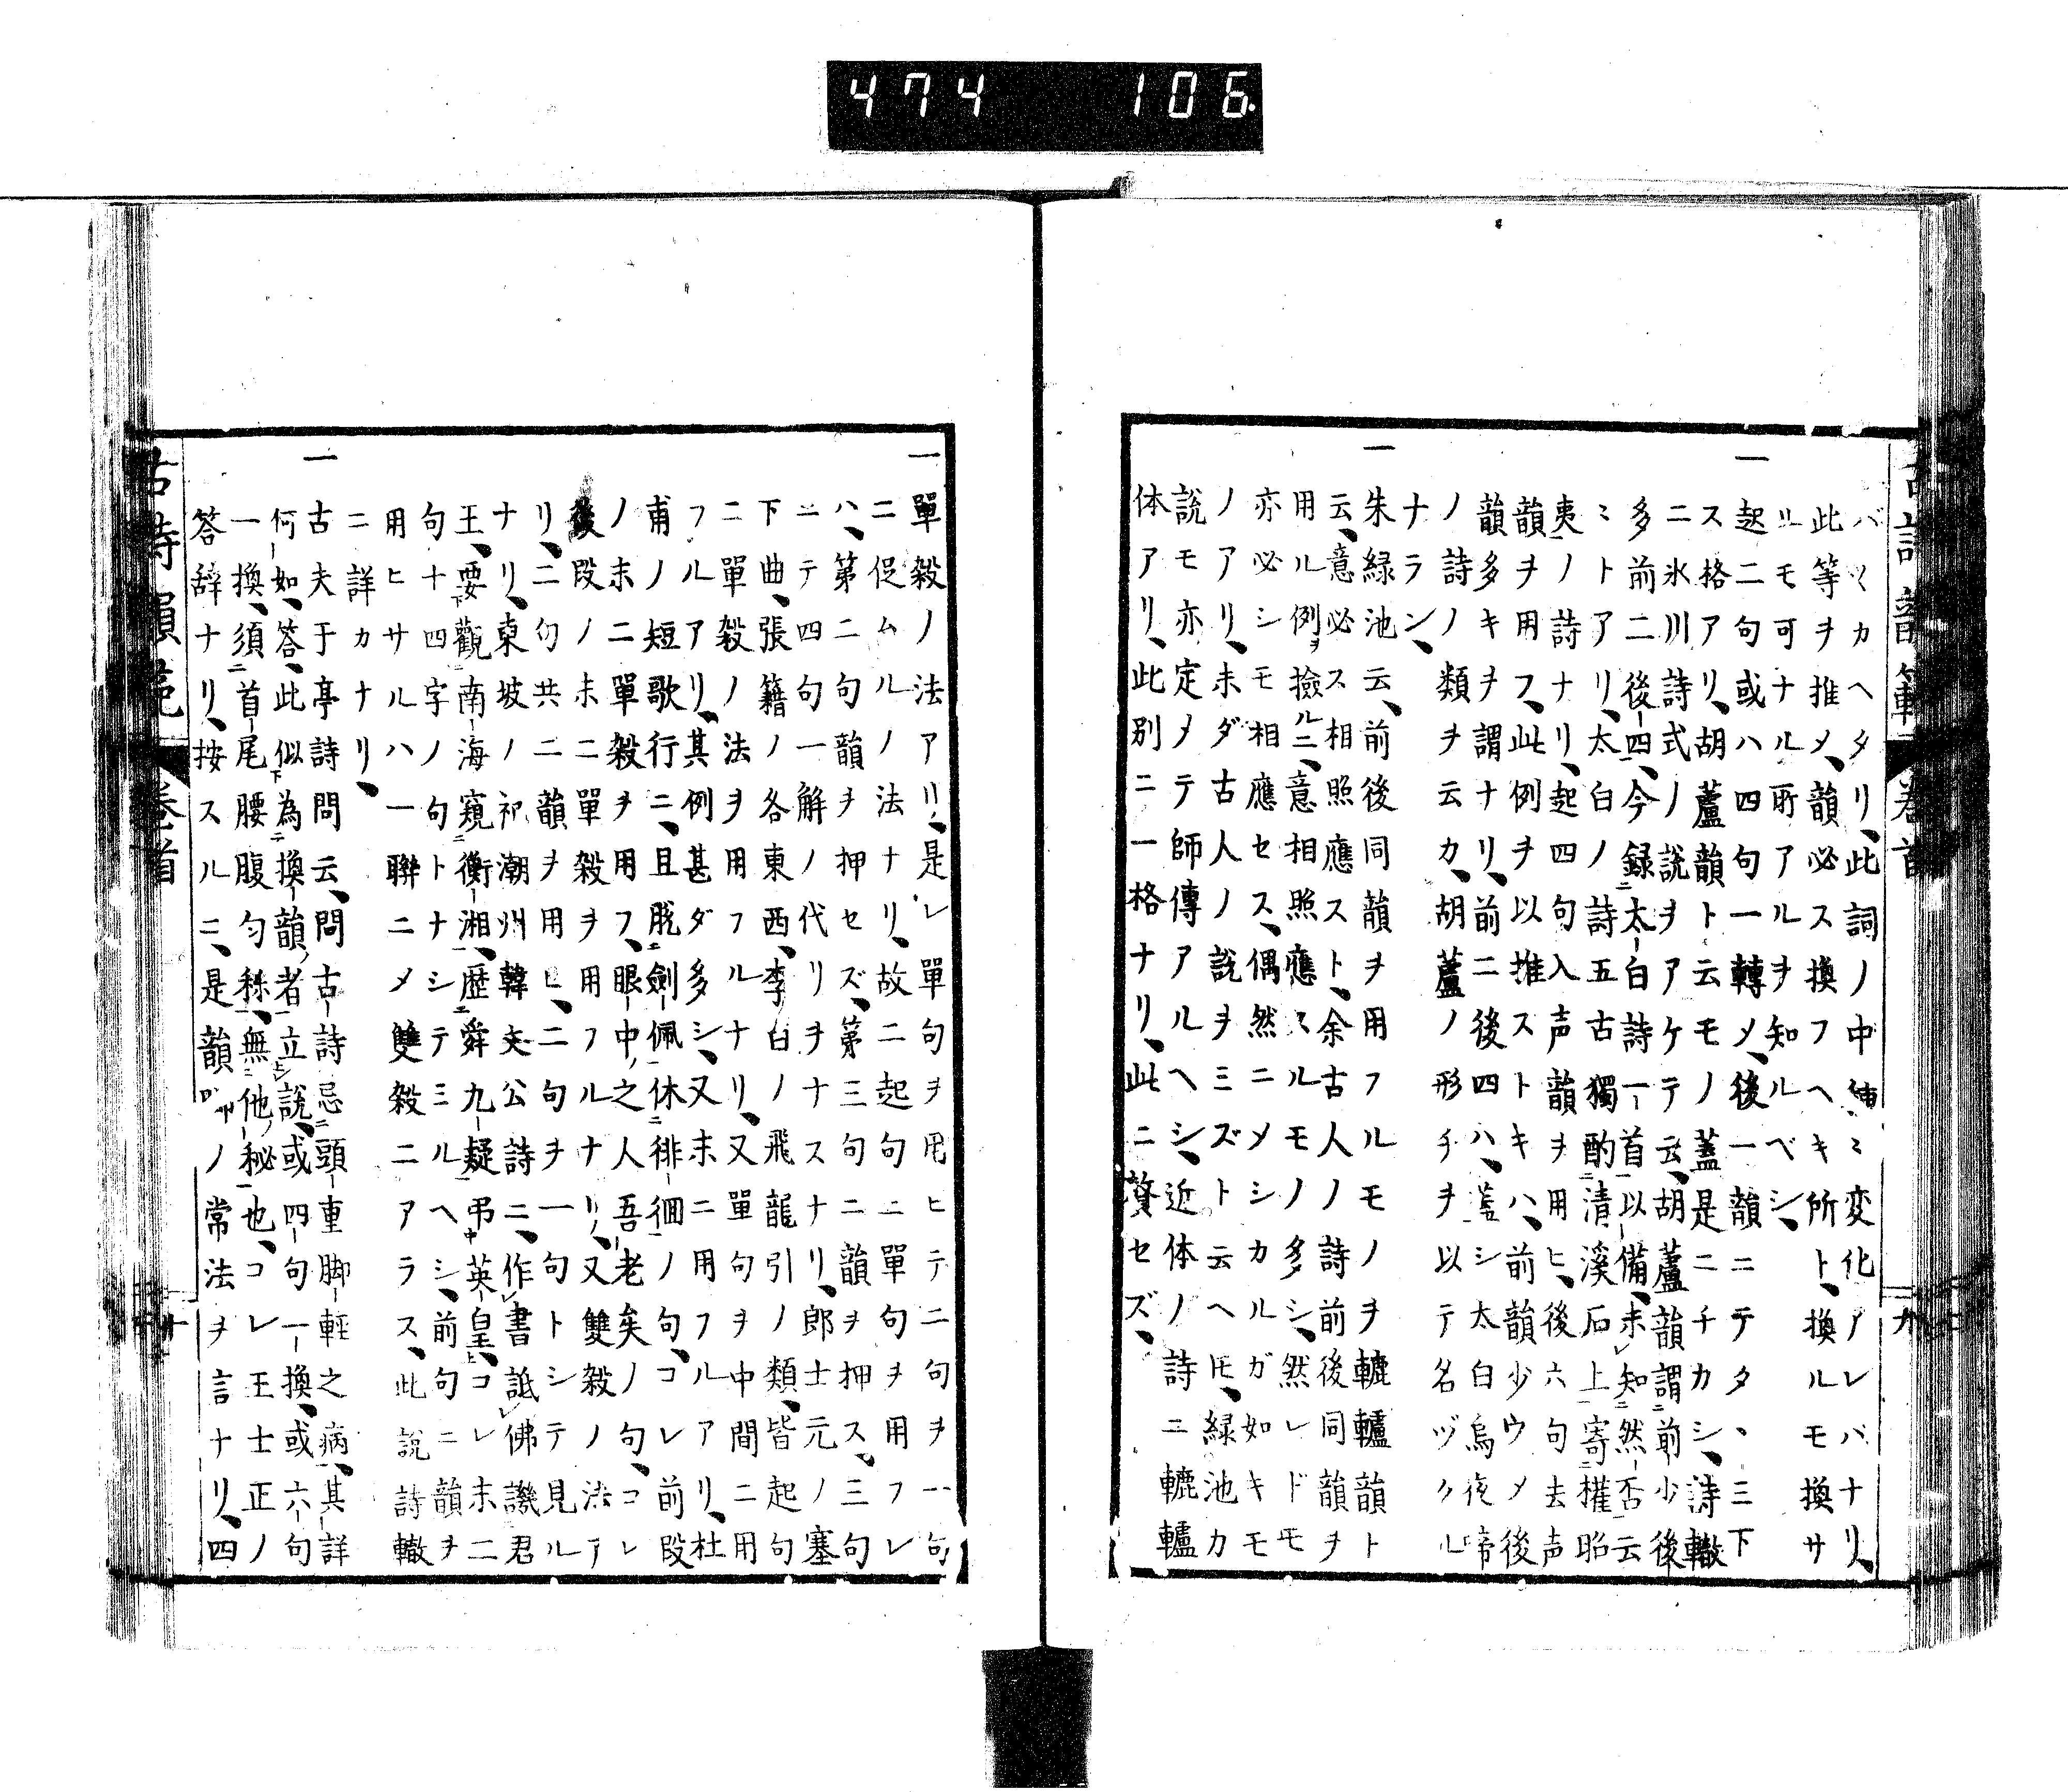 474 106.
古詩韻範 巻首 九
バ〱カヘタリ、此詞ノ中ニ変化アレバナリ、
此等ヲ推メ、韻必ス換フヘキ所ト、換ルモ換サ
ルモ可ナル所アルヲ知ルベシ、
一起二句或ハ四句一轉メ、後一韻ニテタヽ三下
ス格アリ、胡蘆韻ト云モノ蓋是ニチカシ、詩轍
ニ氷川詩式ノ説ヲアケテ云、胡蘆韻謂前少後
多前二後四、今録太白詩一首以備、未知然否云
ミトアリ、太白ノ詩五古獨酌清溪石上寄權昭
夷ノ詩ナリ、起四句入声韻ヲ用ヒ、後六句去声
韻ヲ用フ、此例ヲ以推ストキハ、前韻少ウメ後
韻多キヲ謂ナリ、前二後四ハ、蓋シ太白烏夜啼
ノ詩ノ類ヲ云カ、胡蘆ノ形チヲ以テ名ヅクル
ナラン、
一朱緑池云、前後同韻ヲ用フルモノヲ轆轤韻ト
云、意必ス相照應スト、余古人ノ詩前後同韻ヲ
用ル例ヲ撿ルニ、意相照應スルモノ多シ、然レドモ
亦必シモ相應セス、偶然ニメシカルガ如キモ
ノアリ、未ダ古人ノ説ヲミズト云ヘ圧、緑池カ
説モ亦定メテ師傳アルヘシ、近体ノ詩ニ轆轤
体アリ、此別ニ一格ナリ、此ニ贅セズ、
一單殺ノ法アリ、是レ單句ヲ用ヒテ二句ヲ一句
ニ促ムルノ法ナリ、故ニ起句ニ單句ヲ用フレ
ハ、第二句韻ヲ押セズ、第三句ニ韻ヲ押ス、三句
ニテ四句一解ノ代リヲナスナリ、郎士元ノ塞
下曲、張籍ノ各東西、李白ノ飛龍引ノ類、皆起句
ニ單殺ノ法ヲ用フルナリ、又單句ヲ中間ニ用
フルアリ、其例甚ダ多シ、又末ニ用フルアリ、杜
甫ノ短歌行ニ、且脱劍佩休徘徊ノ句、コレ前段
ノ末ニ單殺ヲ用フ、眼中之人吾老矣ノ句、コレ
後段ノ末ニ單殺ヲ用フルナリ、又雙殺ノ法ア
リ、二句共ニ韻ヲ用ヒ、二句ヲ一句トシテ見ル
ナリ、東坡ノ祀潮州韓文公詩ニ、作書詆佛譏君
王、要觀南海窺衡湘、歴舜九疑弔英皇、コレ末二
句十四字ノ句トナシテミルヘシ、前句ニ韻ヲ
用ヒサルハ一聯ニメ雙殺ニアラス、此説詩轍
ニ詳カナリ、
一古夫于亭詩問云、問古詩忌頭重脚輕之病、其詳
何如、答、此似為換韻者立説、或四句一換、或六句
一換、須首尾腰腹匀稱、無他秘也、コレ王士正ノ
答辞ナリ、按スルニ、是韻叶ノ常法ヲ言ナリ、四
古詩韻範 巻首 十